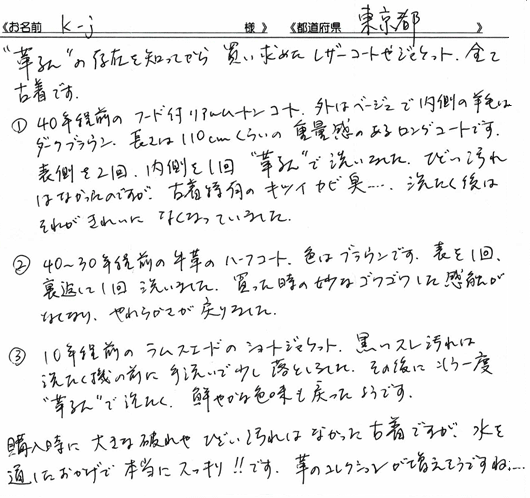 《お名前 K-j 様》《都道府県 東京都 》
"革るん"の存在を知ってから 買い求めた レザーコートやジャケット、全て
古着です。
① 40年程前の フード付リアルムートンコート、外はベージュで内側の羊毛は
ダークブラウン、長さは110cmくらいの重量感のあるロングコートです。
表側を2回、内側を1回 "革るん"で洗いました。ひどい汚れ
はなかったのですが、古着特有のキツイカビ臭…、洗たく後は
それがきれいに なくなっていました。
② 40～30年程前の牛革のハーフコート、色はブラウンです。表を1回、
裏返して1回 洗いました。買った時の妙なゴワゴワした感触が
なくなり、やわらかさが戻りました。
③ 10年程前の ラムスエードのショートジャケット、黒いスレ汚れは
洗たく機の前に手洗いで少し落としました。その後にもう一度
"革るん"で洗たく、鮮やかな色味も戻ったようです。
購入時に 大きな破れや ひどい汚れは なかった古着ですが、水を
通したおかげで 本当に スッキリ!!です。革のコレクションが増えそうですね…